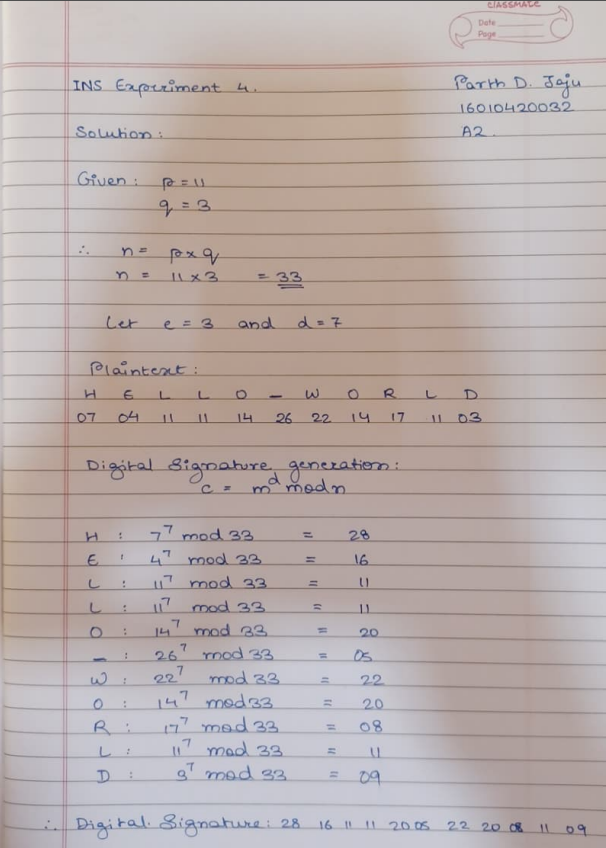 CLASSMATE
Date
Page
INS Experiment 4.
Parth D. Jaju
16010420032
A2.
Solution:
Given: p = 11
q = 3
∴ n = p × q
n = 11 × 3 = 33
Let e = 3 and d = 7
Plaintext:
H E L L O – W O R L D
07 04 11 11 14 26 22 14 17 11 03
Digital Signature generation:
c = m^d mod n
H : 7^7 mod 33 = 28
E : 4^7 mod 33 = 16
L : 11^7 mod 33 = 11
L : 11^7 mod 33 = 11
O : 14^7 mod 33 = 20
– : 26^7 mod 33 = 05
W : 22^7 mod 33 = 22
O : 14^7 mod 33 = 20
R : 17^7 mod 33 = 08
L : 11^7 mod 33 = 11
D : 3^7 mod 33 = 09
∴ Digital Signature: 28 16 11 11 20 05 22 20 08 11 09